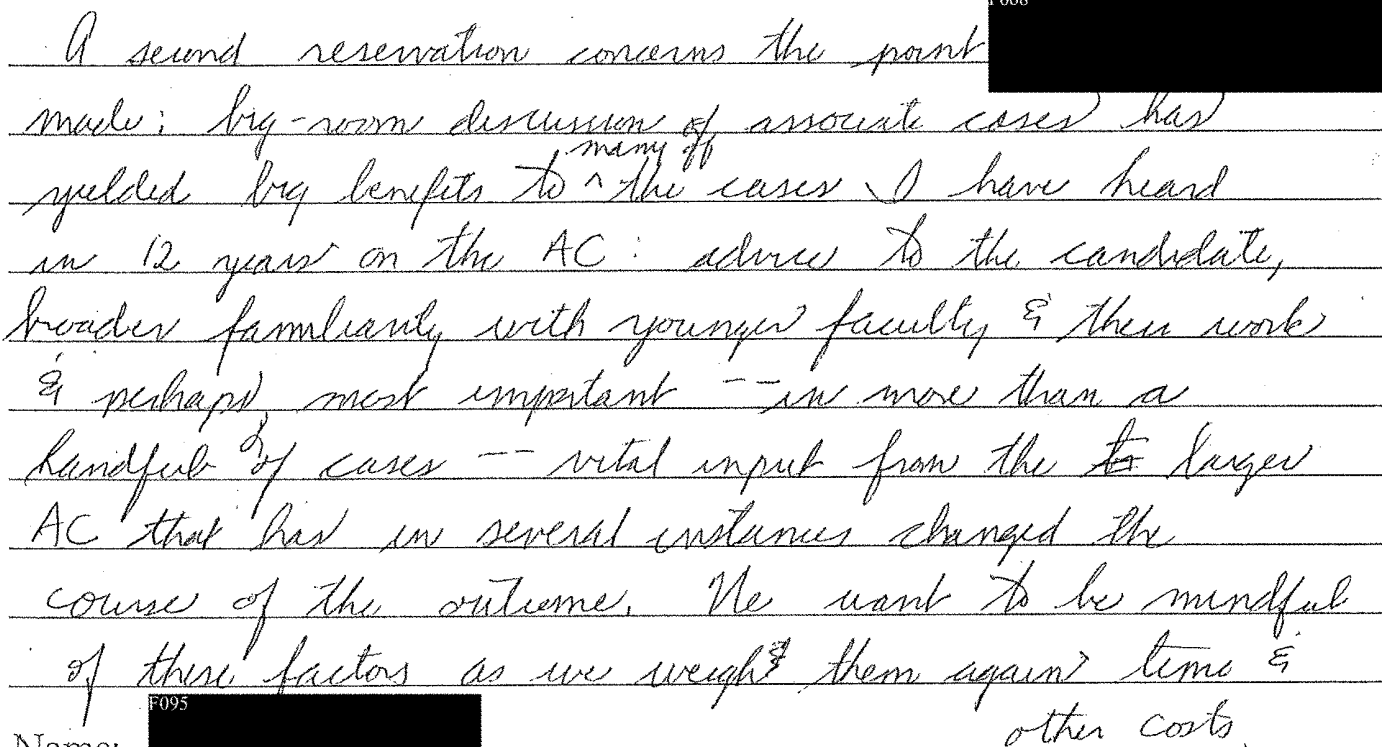 F068
A second reservation concerns the point
made: big-room discussion of associate cases has
yielded big benefits to ^ many of the cases I have heard
in 12 years on the AC: advice to the candidate,
broader familiarity with younger faculty & their work
& perhaps, most important -- in more than a
handful of cases -- vital input from the larger
AC that has in several instances changed the
course of the outcome. We want to be mindful
of these factors as we weigh them again time &
other costs.
F095
Name: